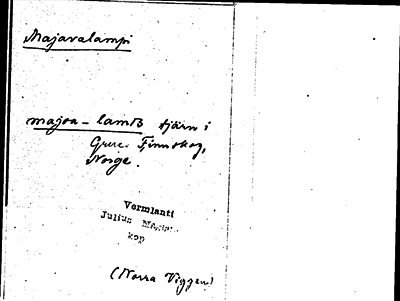 Majavalampi
majoa-lamB tjärn i
Grue Finnskog,
Norge.
Vermlanti
Julius
kop
(Norra Viggen)